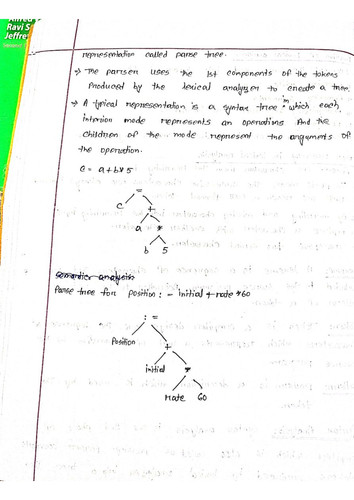 Ravi S
Jeffre
representation called parse tree.
→ The parser uses the 1st components of the tokens
Produced by the lexical analyzer to create a tree.
→ A typical representation is a syntax tree in which each
interior node represents an operations And the
children of the node represent the arguments of
the operation.
c = a+b*5
=
c +
a *
b 5
Semantic analysis:
Parse tree for position : - initial + rate *60
: =
Position +
initial *
rate 60